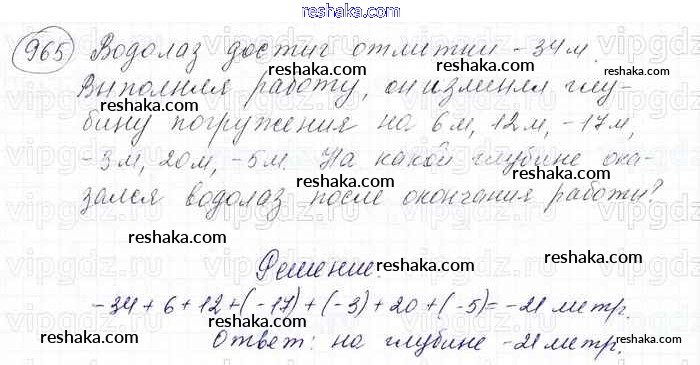 reshaka.com
965 Водолаз достиг отметки -34 м.
reshaka.com reshaka.com
Выполняя работу, он изменял глу-
бину погружения на 6 м, 12 м, -17 м,
reshaka.com reshaka.com
-3 м, 20 м, -5 м. На какой глубине ока-
reshaka.com
зался водолаз после окончания работы?
reshaka.com reshaka.com
Решение.
reshaka.com reshaka.com
-34 + 6 + 12 + (-17) + (-3) + 20 + (-5) = -21 метр.
reshaka.com
Ответ: на глубине -21 метр.
reshaka.com